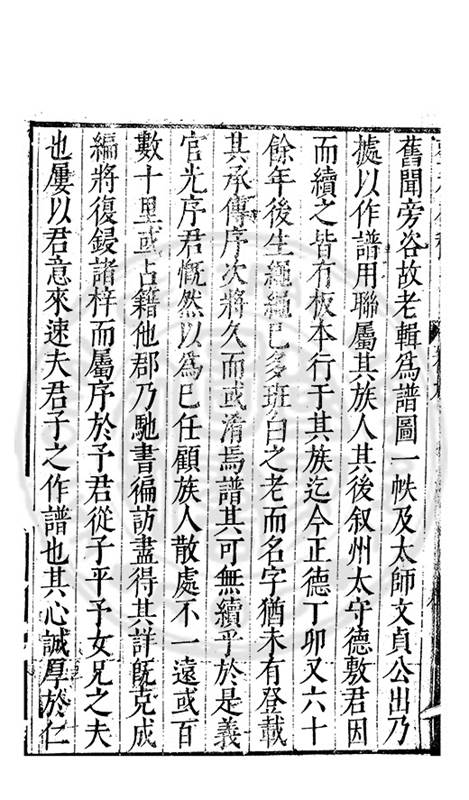 舊聞旁咨故老輯爲譜圖一帙及太師文貞公出乃
據以作譜用聯屬其族人其後叙州太守德敷君因
而續之皆有板本行于其族迄今正德丁卯又六十
餘年後生繩繩已多班白之老而名字猶未有登載
其承傳序次將久而或淆焉譜其可無續乎於是義
官光序君慨然以爲已任顧族人散處不一遠或百
數十里或占籍他郡乃馳書徧訪盡得其詳旣克成
編將復鋟諸梓而屬序於予君從子平予女兄之夫
也屢以君意來速夫君子之作譜也其心誠厚於仁